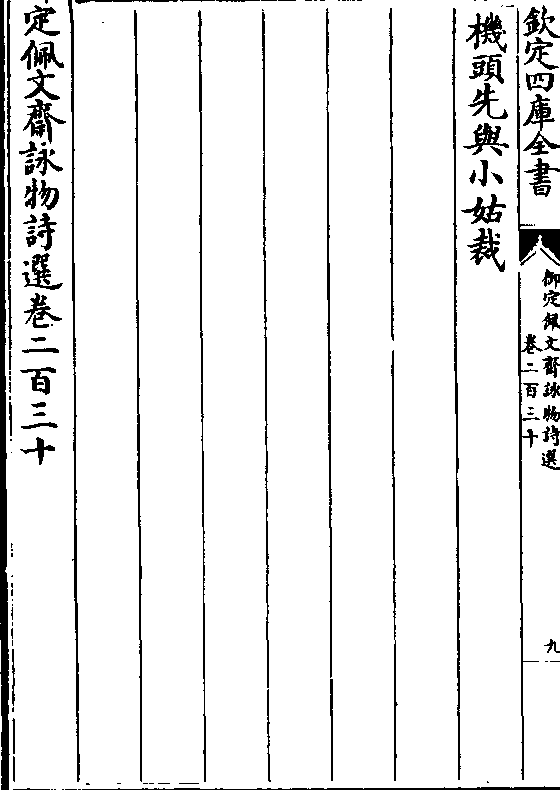 欽定四庫全書
御定佩文齋詠物詩選
卷二百三十
九
機頭先與小姑裁
定佩文齋詠物詩選卷二百三十